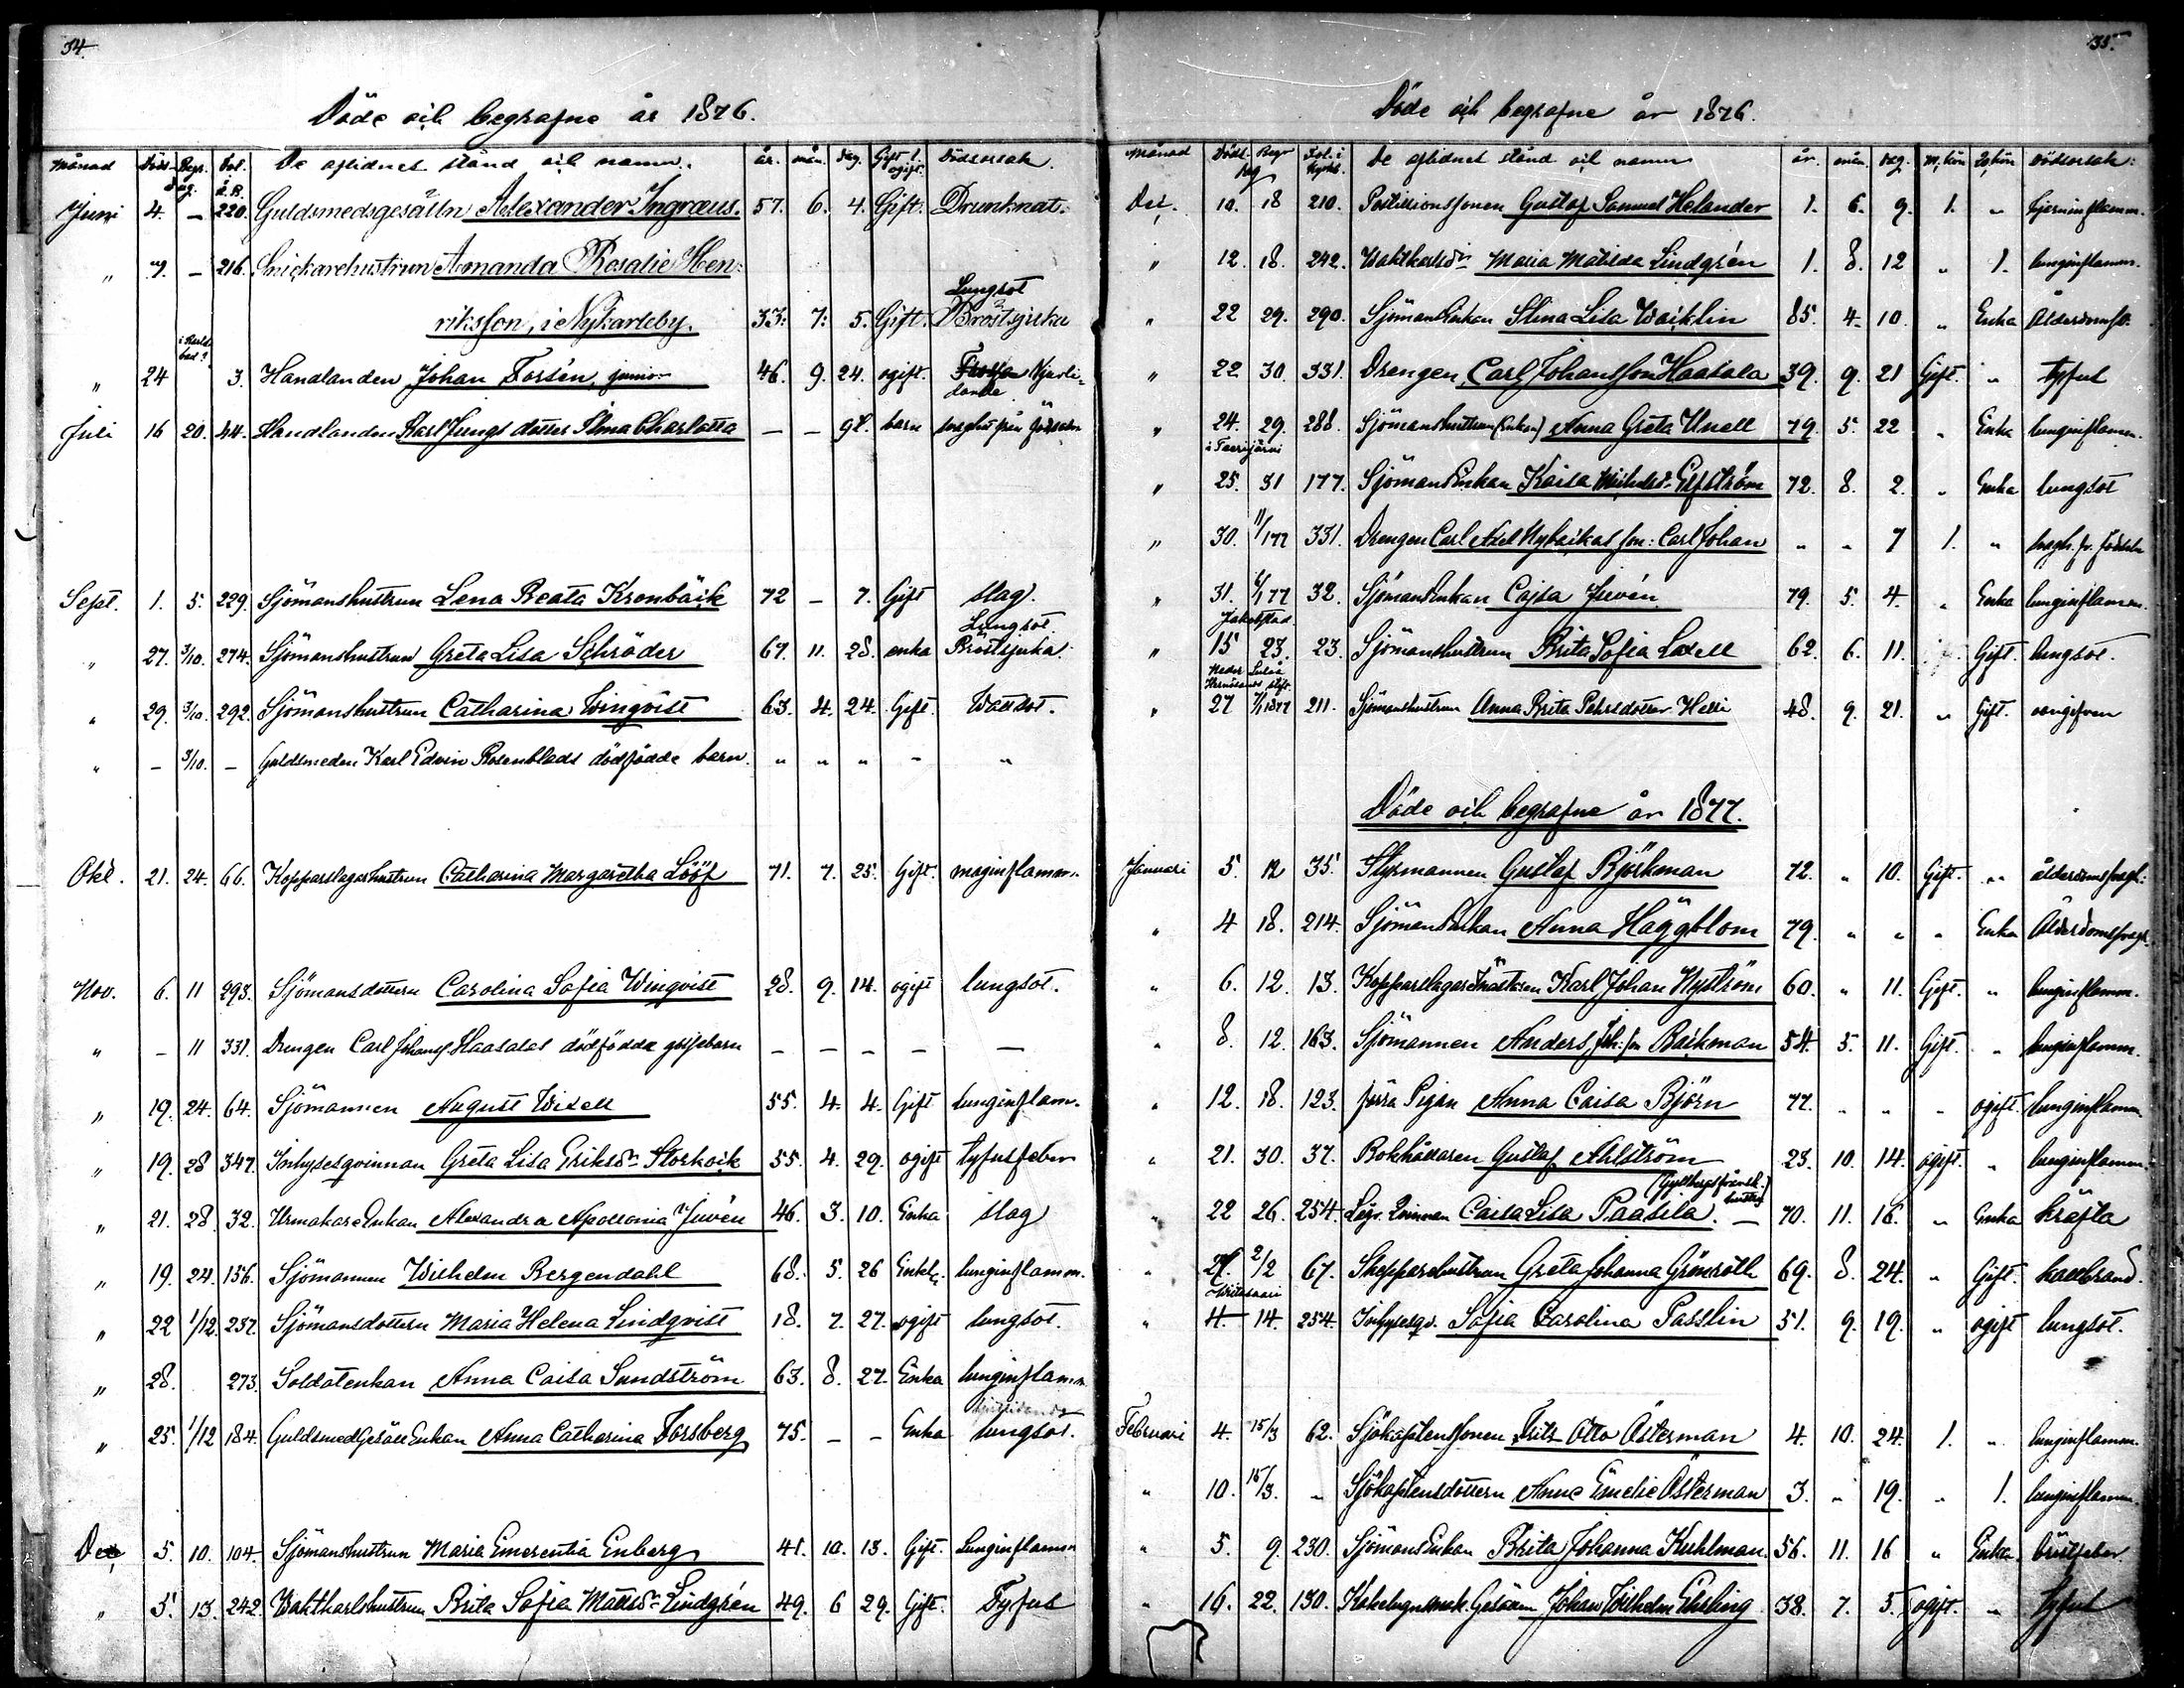 34.
Döde och begrafne år 1876.
Månad Död- Begr. dag. Vol. å. B. De aflidnes stånd och namn. år. mån. dag. Gift l. ogift. Dödsorsak.
Juni 4. – 220. Guldsmedsgesälln Alexander Ingraeus. 57. 6. 4. Gift. Drunknat.
" 9. – 216. Snickarehustrun Amanda Rosalie Hen-
Lungsot
riksson, i Nykarleby. 33: 7: 5. Gift. Bröstsjuka
" 24 3. Handlanden Johan Forsén, junior 46. 9. 24. ogift. Njurli-
dande
Juli 16 20. 44. Handlanden Karl Jungs dotter Ilma Charlotta — — 92. barn
Sept. 1. 5. 229. Sjömanshustrun Lena Beata Kronbäck 72 – 7. Gift slag.
Lungsot
" 27. 3/10. 274. Sjömanshustrun Greta Lisa Schröder 67. 11. 28. enka Bröstsjuka.
" 29. 3/10. 292. Sjömanshustrun Catharina Winqvist 63. 4. 24. Gift. Wattsot.
" – 3/10. – Guldsmeden Karl Edvin Rosenblads dödfödde barn. " " " " "
Okt. 21. 24. 66. Kopparslagarehustrun Catharina Margaretha Lööf 71. 7. 25. Gift. maginflamm.
Nov. 6. 11 293. Sjömansdottern Carolina Sofia Winqvist 28. 9. 14. ogift lungsot.
" – 11 331. Drengen Carl Johanss Haasalas dödfödda gossebarn – – – – –
" 19. 24. 64. Sjömannen August Wixell 55. 4. 4. Gift lunginflam.
" 19. 28 347. Inhysesqvinnan Greta Lisa Eriksdr Storkoik 55. 4. 29. ogift tyfusfeber
" 21. 28. 32. Urmakare Enkan Alexandra Apollonia Juvén 46. 3. 10. Enka slag
" 19. 24. 156. Sjömannen Wilhelm Bergendahl 68. 5. 26 Enkl. lunginflamm.
" 22 1/12. 237. Sjömansdottern Maria Helena Lindqvist 18. 7. 27. ogift lungsot.
" 28. 273. Soldatenkan Anna Caisa Sundström 63. 8. 27. Enka lunginflamm
" 25. 1/12 184. Guldsmed Gesäll Enkan Anna Catharina Forsberg 75. – – Enka lungsot.
Dec 5. 10. 104. Sjömanshustrun Maria Emerentia Enberg 41. 10. 13. Gift. Lunginflamm
" 5. 13. 242. Wakthkarlshustrun Brita Sofia Mattsdr Lindgrén 49. 6 29. Gift. Tyfus
35.
Döde och begrafne år 1876.
Månad Död- Begr dag Fol. i Kyrkb. De aflidnes stånd och namn år. mån. dag. M.kön Q.kön Dödsorsak:
Dec. 10. 18 210. Postillionssonen Gustaf Samuel Helander 1. 6. 9. 1. " hjerninflamm.
" 12. 18. 242. Wakthkarlsdr Maria Matilda Lindgrén 1. 8. 12 " 1. lunginflamm.
" 22 29. 290. Sjömans Enkan Stina Lisa Waiklin 85. 4. 10. " Enka Ålderdomsv.
" 22 30. 331. Drengen Carl Johansson Haasala 39. 9. 21 Gift. " tyfus
" 24. 29. 288. Sjömanshustrun (Enkan) Anna Greta Unell 79. 5. 22 " Enka lunginflamm.
i Teerijärvi
" 25. 31 177. Sjömans Enkan Kaisa Michelsdr Elfström 72. 8. 2. " Enka lungsot
" 30. 11/1 77 331. Drengen Carl Axel Nybäckas son: Carl Johan " " 7 1. " svagh. fr. födseln
" 31. 6/1 77 32. Sjömans Enkan Cajsa Juvén 79. 5. 4. " Enka lunginflamm.
Jakobstad
" 15 23. 23. Sjömanshustrun Brita Sofia Laxell 62. 6. 11. Gift. lungsot.
Neder Luleå
Hernösands stift.
" 27 7/1 1877 211. Sjömanshustrun Anna Brita Pehrsdotter Helsi 48. 9. 21. " Gift. oangifven
Döde och begrafne år 1877.
Januari 5. 12 35. Styrmannen Gustaf Björkman 72. " 10. Gift. " ålderdomssvagh:
" 4 18. 214. Sjömans Enkan Anna Häggblom 79. " " " Enka Ålderdomssvagh
" 6. 12. 13. Kopparslagaremästaren Karl Johan Nyström 60. " 11. Gift. " lunginflamm.
" 8. 12. 163. Sjömannen Anders Joh:son Backman 54. 5. 11. Gift. " lunginflamm.
" 12. 18. 123. förra Pigan Anna Caisa Björn 77. " " " ogift. lunginflamm
" 21. 30. 37. Bokhållaren Gustaf Ahlström 23. 10. 14. ogift. " lunginflamm.
" 22 26. 254. Legr. Qvinnan Caisa Lisa Paasila. — 70. 11. 16. " Enka kräfta
" 27. 2/2 67. Skepparehustrun Greta Johanna Grönroth 69. 8. 24. " Gift. kallbrand.
Wiitasaari
" 4. 14. 254. Inhysesqv. Sofia Carolina Passlin 51. 9. 19. " ogift lungsot.
Februari 4. 15/3 62. Sjökaptenssonen Frits Otto Österman 4. 10. 24. 1. " lunginflamm.
" 10. 15/3. " Sjökaptensdottern Anna Emelie Österman 3. " 19. " 1. lunginflamm.
" 5. 9. 230. Sjömans Enkan Brita Johanna Kuhlman. 56. 11. 16 " Enka.
" 16. 22. 130. Kakelugnsmak. Gesällen Johan Wilhelm Ehsling 38. 7. 5. ogift. " tyfus